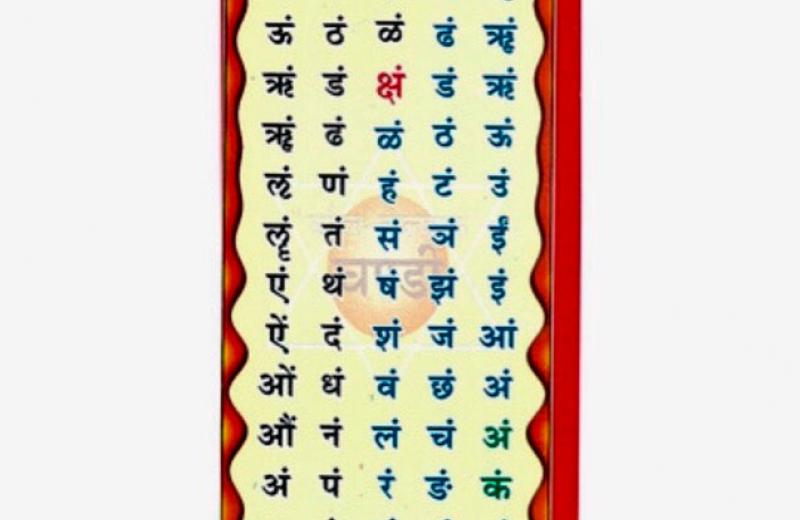 ऊं ठं ळं ढं ॠं
ऋं डं क्षं डं ऋं
ॠं ढं ळं ठं ऊं
लृं णं हं टं उं
ॡं तं सं ञं ईं
एं थं षं झं इं
चण्डी
ऐं दं शं जं आं
ओं धं वं छं अं
औं नं लं चं अं
अं पं रं ङं कं